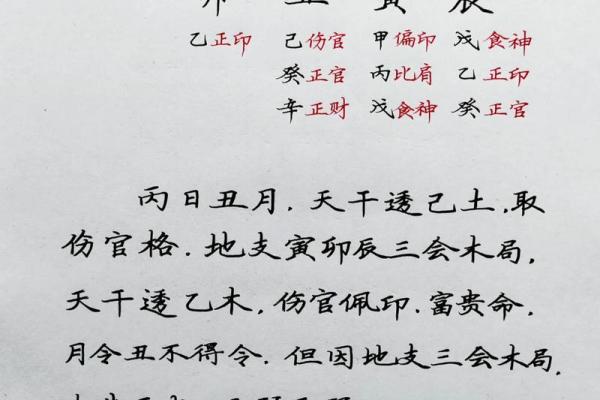 卯 丑 寅 辰
乙正印 己伤官 甲偏印 戊食神
癸正官 丙比肩 乙正印
辛正财 戊食神 癸正官
丙日丑月.天干透己土,取
伤官格.地支寅卯辰三会木局,
天干透乙木,伤官佩印.富贵命.
月令丑不得令.但因地支三会木局.